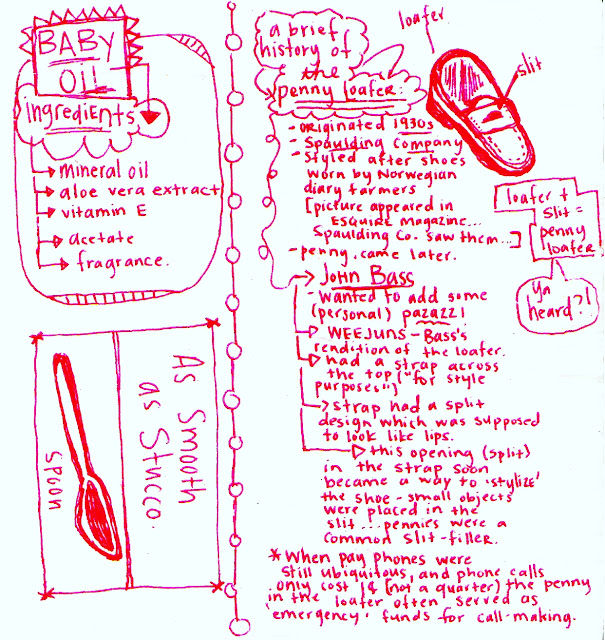 BABY
OIL
INGREDIENTS
mineral oil
aloe vera extract
vitamin E
acetate
fragrance.
As Smooth
as Stucco.
spoon
a brief
history of
the
penny loafer:
loafer
slit
- originated 1930s
- Spaulding Company
- Styled after shoes
worn by Norwegian
diary farmers
[picture appeared in
ESQUIRE Magazine...
Spaulding Co. saw them...]
- penny came later.
loafer +
slit =
penny
loafer
ya
heard?!
JOHN BASS
- wanted to add some
(personal) pazazz!
WEEJUNS - Bass's
rendition of the loafer.
had a strap across
the top ("for style
purposes")
strap had a split
design which was supposed
to look like lips.
this opening (split)
in the strap soon
became a way to 'stylize'
the shoe - small objects
were placed in the
slit... pennies were a
common slit-filler.
* When pay phones were
still ubiquitous, and phone calls
only cost 1¢ (not a quarter) the penny
in the loafer often served as
'emergency' funds for call-making.